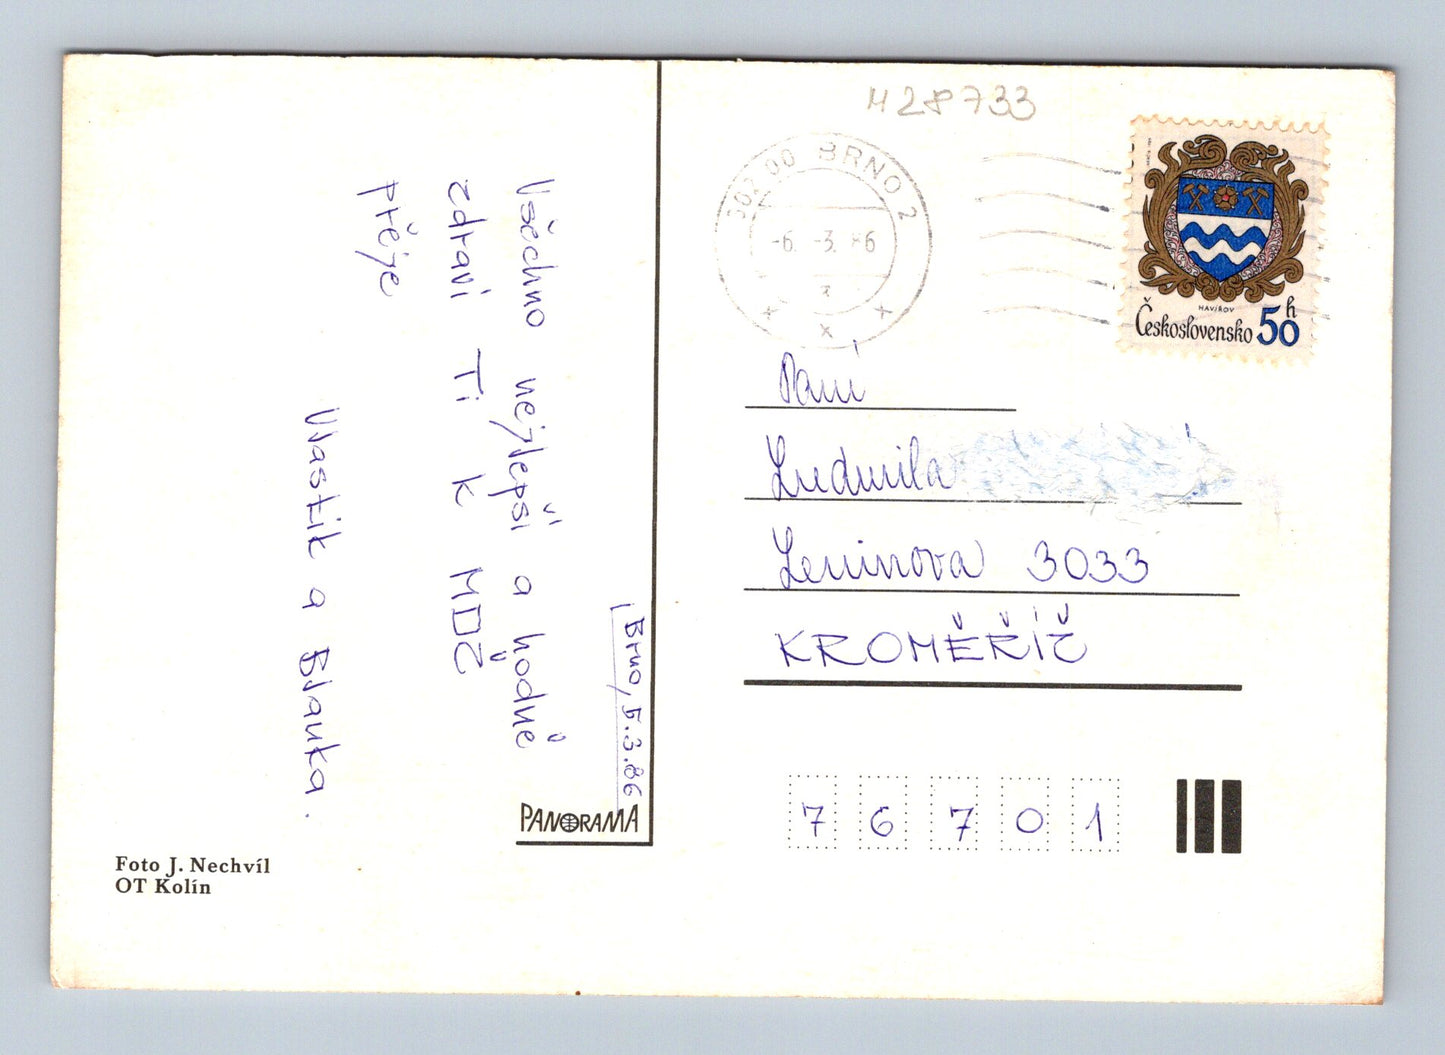 Brno, 5.3.86
Všechno nejlepší a hodně
zdraví Ti k MDŽ
přeje
Vlastik a Blanka.
PANORAMA
Foto J. Nechvíl
OT Kolín
M28733
602 00 BRNO 2
-6.-3.86
HAVÍŘOV
Československo 50 h
Paní
Ludmila
Leninova 3033
KROMĚŘÍŽ
76701